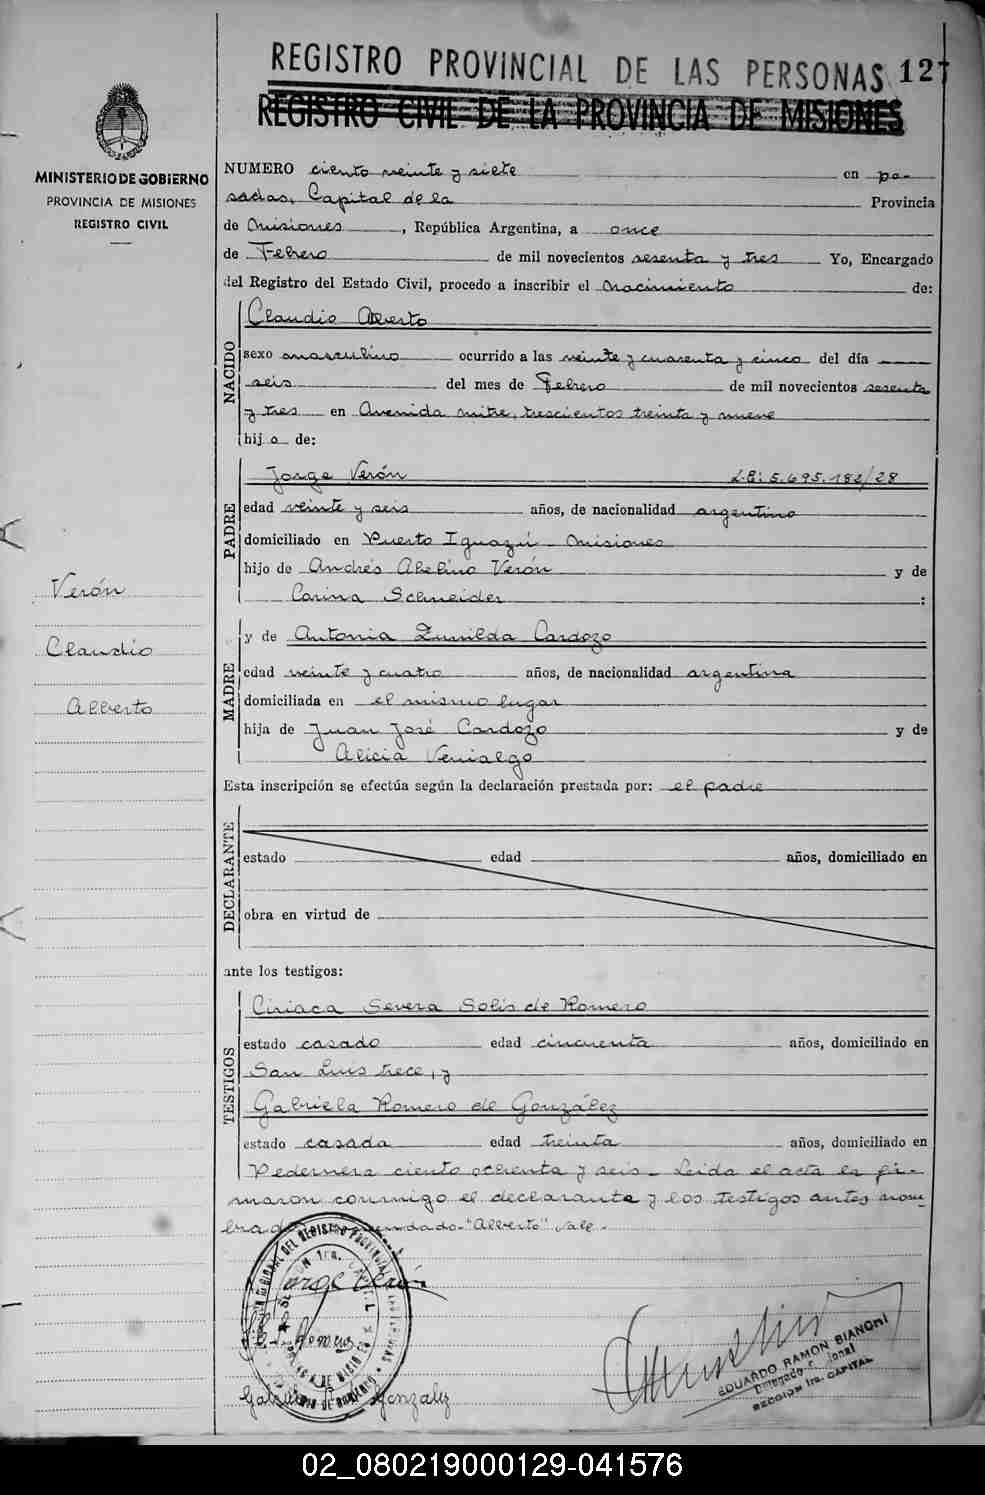 REGISTRO PROVINCIAL DE LAS PERSONAS 127
REGISTRO CIVIL DE LA PROVINCIA DE MISIONES
MINISTERIO DE GOBIERNO
PROVINCIA DE MISIONES
REGISTRO CIVIL
NUMERO ciento veinte y siete en Po-
sadas, Capital de la Provincia
de Misiones, República Argentina, a once
de Febrero de mil novecientos sesenta y tres Yo, Encargado
del Registro del Estado Civil, procedo a inscribir el nacimiento de:
NACIDO
Claudio Alberto
sexo masculino ocurrido a las veinte y cuarenta y cinco del día
seis del mes de Febrero de mil novecientos sesenta
y tres en Avenida Mitre, trescientos treinta y nueve
hijo de:
PADRE
Jorge Verón LE: 5.695.182/28
edad veinte y seis años, de nacionalidad argentino
domiciliado en Puerto Iguazú - Misiones
hijo de Andrés Abelino Verón y de
Carina Schneider :
Verón
Claudio
Alberto
MADRE
y de Antonia Zunilda Cardozo
edad veinte y cuatro años, de nacionalidad argentina
domiciliada en el mismo lugar
hija de Juan José Cardozo y de
Alicia Venialgo
Esta inscripción se efectúa según la declaración prestada por: el padre
DECLARANTE
estado edad años, domiciliado en
obra en virtud de
ante los testigos:
TESTIGOS
Ciriaca Severa Solís de Romero
estado casado edad cincuenta años, domiciliado en
San Luis trece, y
Gabriela Romero de González
estado casada edad treinta años, domiciliado en
Pedernera ciento ochenta y seis - Leida el acta la fir-
maron conmigo el declarante y los testigos antes nom-
brados enmendado - "Alberto" vale.
Jorge Verón
Romero
Gabriela R. González
EDUARDO RAMON BIANCHI
SECCION 1ra. CAPITAL
02_080219000129-041576